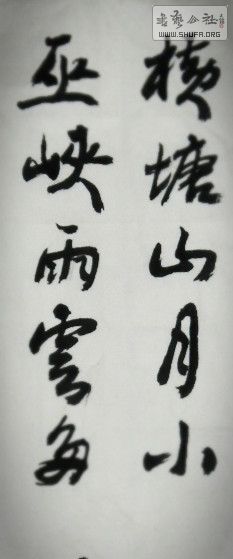 書藝公社
WWW.SHUFA.ORG
橫塘山月小
巫峽雨雲多